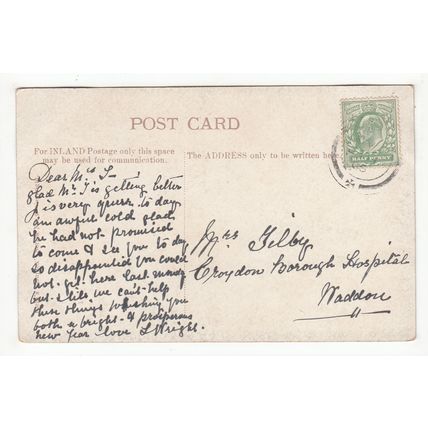 POST CARD
For INLAND Postage only this space
may be used for communication.
The ADDRESS only to be written here
HALF PENNY
Dear Mrs
glad Mr J is getting better
J is very to day
an awful cold glad
he had not promised
to come & see you to day
so disappointed you could
not get here last
but we can't help
these things wishing you
both a bright & prosperous
new year love L Wright.
Mrs Gilby
Croydon Borough Hospital
Waddon